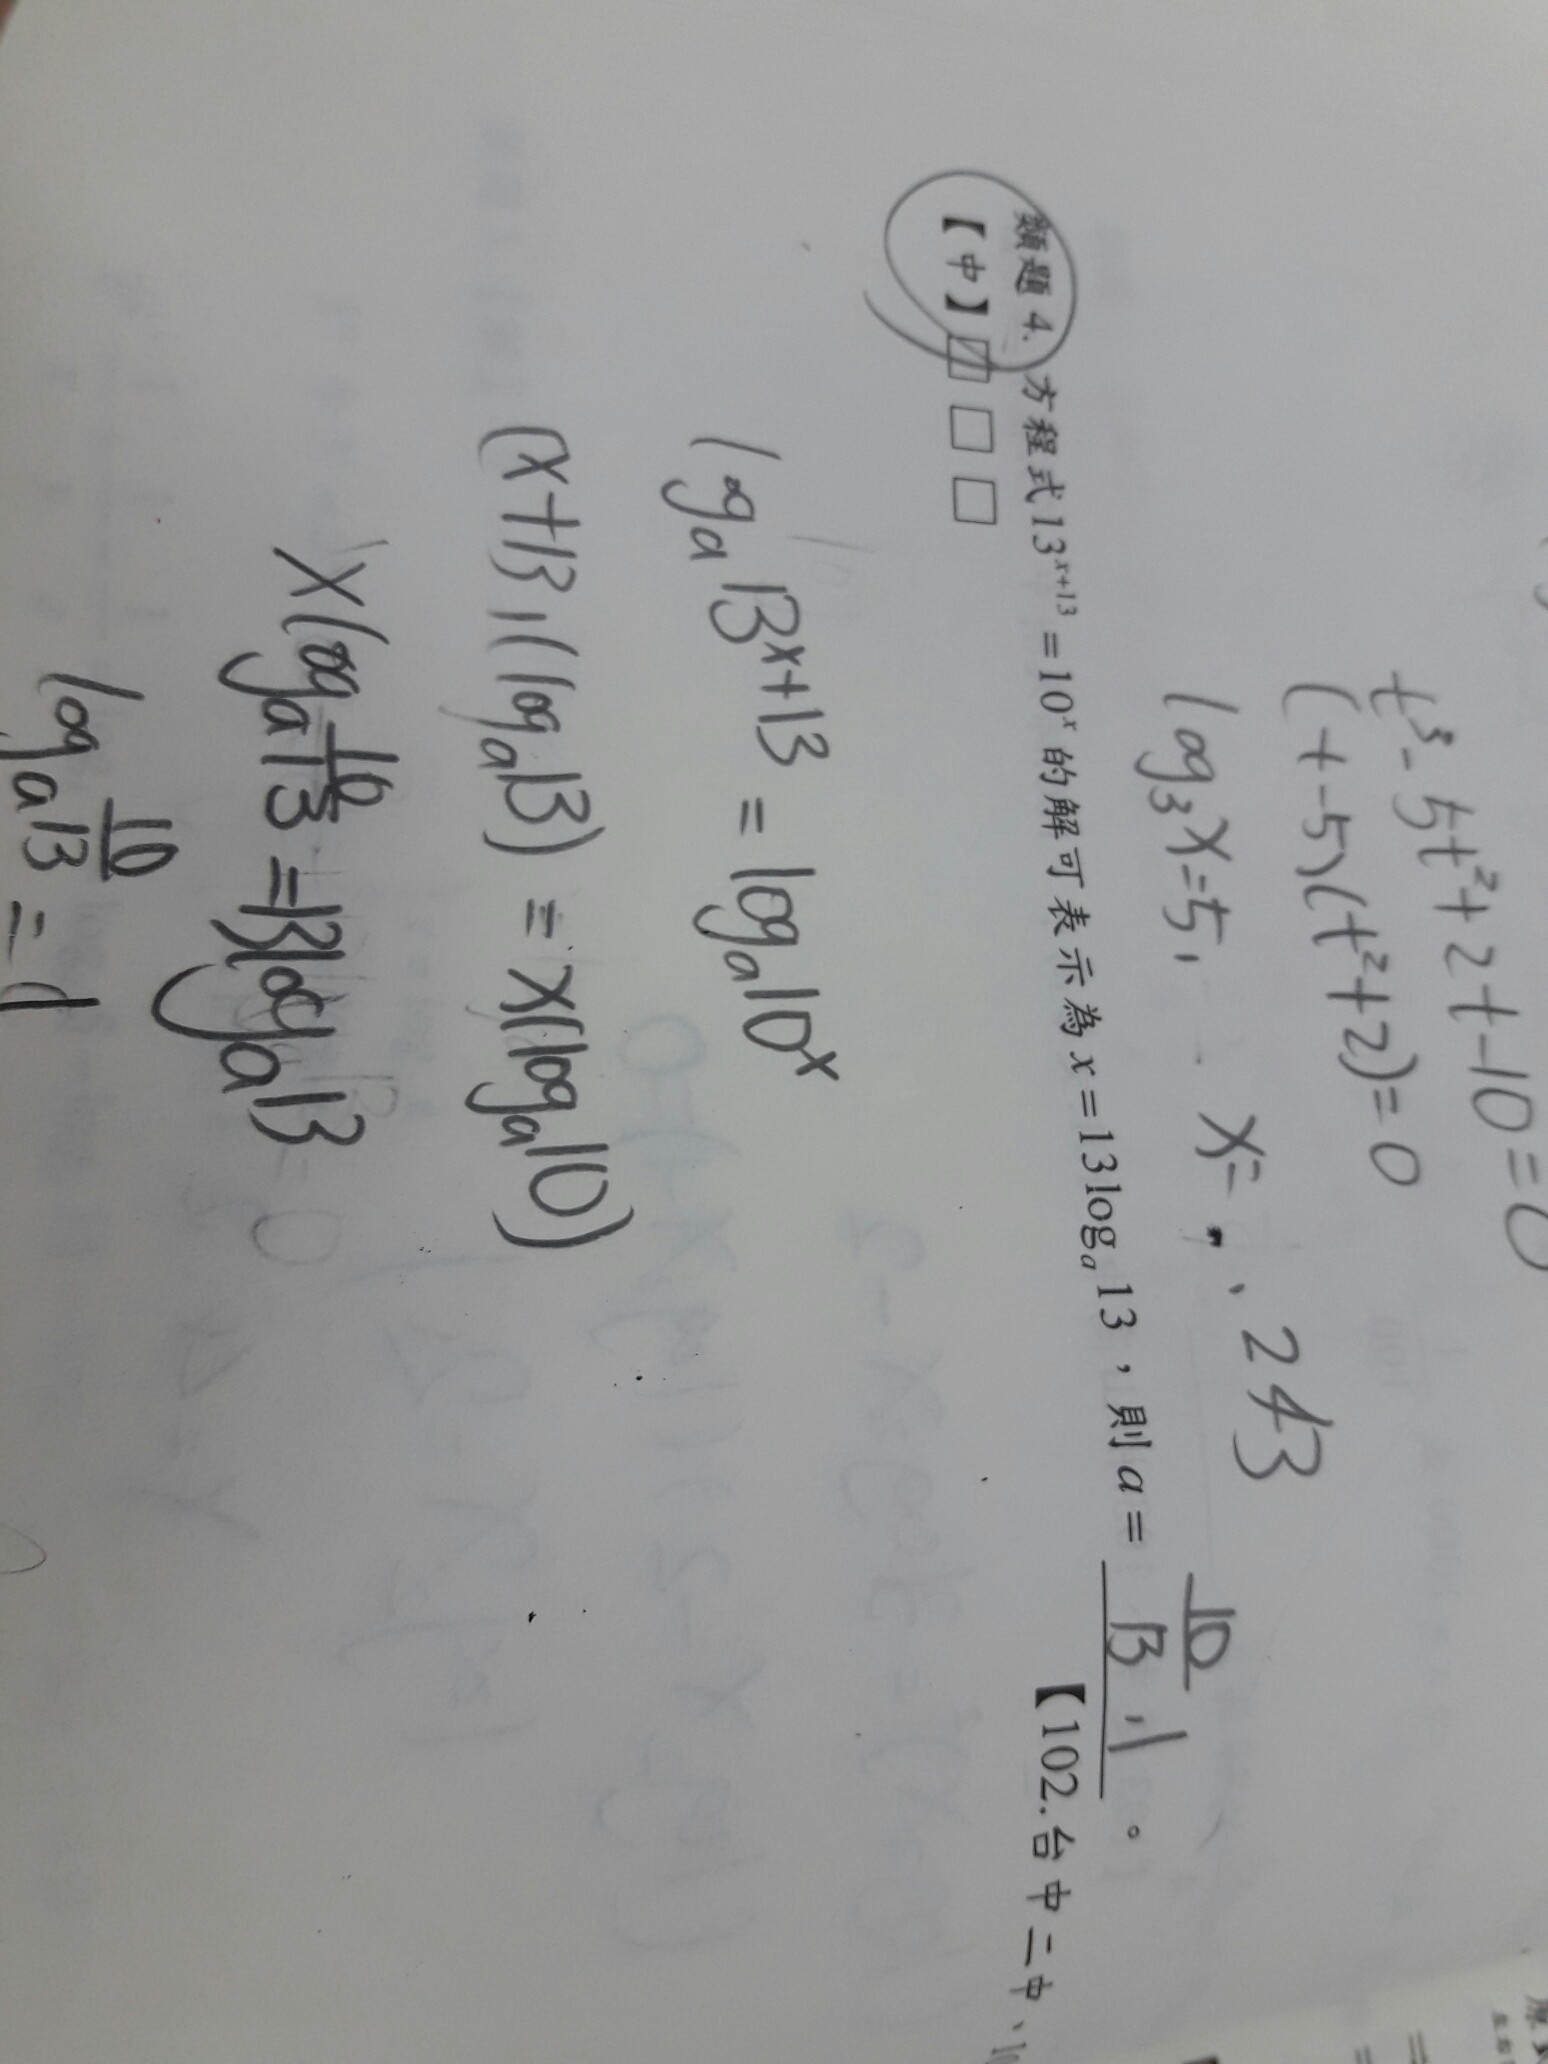 t³-5t²+2t-10=0
(t-5)(t²+2)=0
log₃x=5, x= 、243
類題 4. 方程式13ˣ⁺¹³=10ˣ的解可表示為x=13logₐ13,則a= 10/13 , 1 。
【中】□□□ 【102.台中二中、
logₐ13ˣ⁺¹³ = logₐ10ˣ
(x+13)(logₐ13) = x(logₐ10)
xlogₐ10/13 =13logₐ13
logₐ10/13 = 1